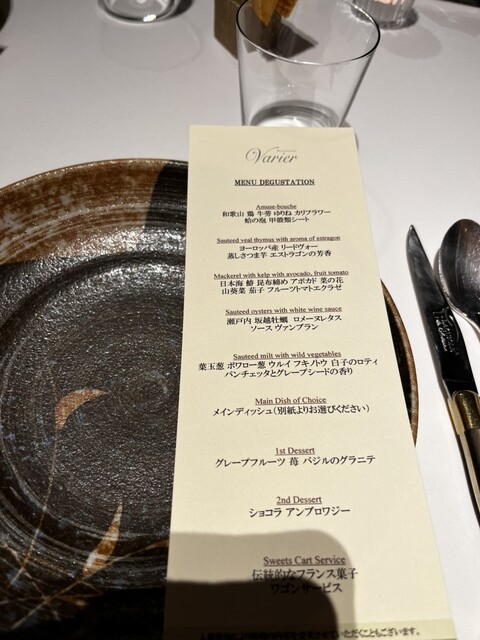 Varier
MENU DEGUSTATION
Amuse-bouche
和歌山 鶏 牛蒡 ゆりね カリフラワー
蛤の泡 甲殻類シート
Sauteed veal thymus with aroma of estragon
ヨーロッパ産 リードヴォー
蒸しさつま芋 エストラゴンの芳香
Mackerel with kelp with avocado, fruit tomato
日本海 鰆 昆布締め アボカド 菜の花
山葵菜 茄子 フルーツトマトエクラゼ
Sauteed oysters with white wine sauce
瀬戸内 坂越牡蠣 ロメーヌレタス
ソース ヴァンブラン
Sauteed milt with wild vegetables
葉玉葱 ポワロー葱 ウルイ フキノトウ 白子のロティ
パンチェッタとグレープシードの香り
Main Dish of Choice
メインディッシュ（別紙よりお選びください）
1st Dessert
グレープフルーツ 苺 バジルのグラニテ
2nd Dessert
ショコラ アンブロワジー
Sweets Cart Service
伝統的なフランス菓子
ワゴンサービス
いただくこともございます。